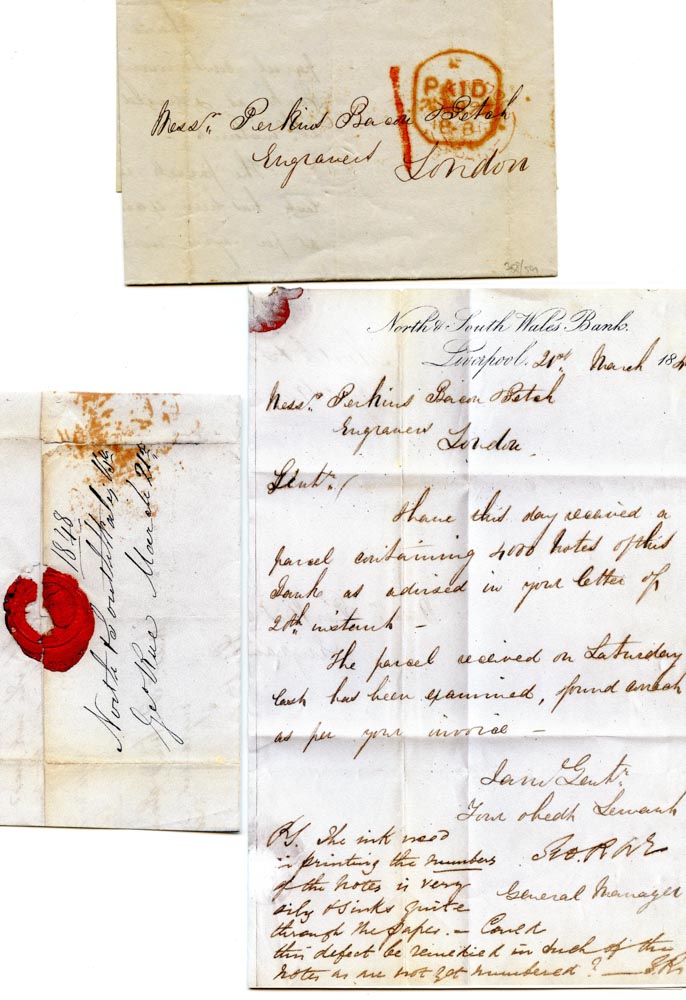 Messrs. Perkins Bacon & Petch
Engravers
London
PAID
1848
North & South Wales Bk
Geo Rae March 21st
North & South Wales Bank.
Liverpool. 21st March 184
Messrs. Perkins Bacon & Petch
Engravers
London
Gentn. /
I have this day received a
parcel containing 4000 Notes of this
Bank as advised in your letter of
20th instant –
The parcel received on Saturday
last has been examined, & found correct
as per your invoice –
I am Gentn.
Your obedt Servant
Geo. Rae
General Manager
P.S. The ink used
in printing the numbers
of the Notes is very
oily & sinks quite
through the paper. – Could
this defect be remedied in such of the
Notes as are not yet numbered? – G.R.